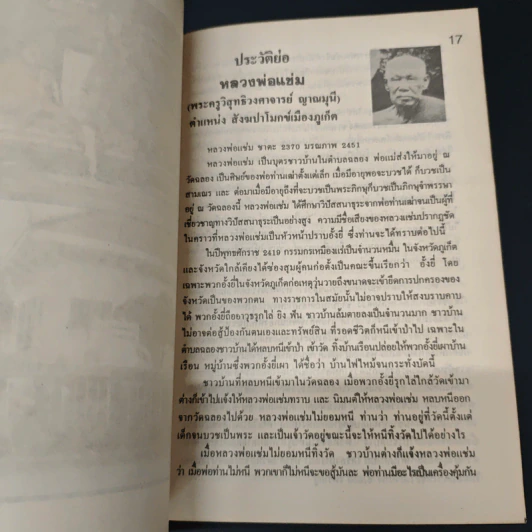 17
ประวัติย่อ
หลวงพ่อแช่ม
(พระครูวิสุทธิวงศาจารย์ ญาณมุนี)
ตำแหน่ง สังฆปาโมกข์เมืองภูเก็ต
หลวงพ่อแช่ม ชาตะ 2370 มรณภาพ 2451
หลวงพ่อแช่ม เป็นบุตรชาวบ้านในตำบลฉลอง พ่อแม่ส่งให้มาอยู่ ณ
วัดฉลอง เป็นศิษย์ของพ่อท่านเฒ่าตั้งแต่เล็ก เมื่อมีอายุพอจะบวชได้ ก็บวชเป็น
สามเณร และ ต่อมาเมื่อมีอายุถึงที่จะบวชเป็นพระภิกษุก็บวชเป็นภิกษุจำพรรษา
อยู่ ณ วัดฉลองนี้ หลวงพ่อแช่ม ได้ศึกษาวิปัสสนาธุระจากพ่อท่านเฒ่าจนเป็นผู้ที่
เชี่ยวชาญทางวิปัสสนาธุระเป็นอย่างสูง ความมีชื่อเสียงของหลวงพ่อแช่มปรากฏชัด
ในคราวที่หลวงพ่อแช่มเป็นหัวหน้าปราบอั้งยี่ ซึ่งท่านจะได้ทราบต่อไปนี้
ในปีพุทธศักราช 2419 กรรมกรเหมืองแร่เป็นจำนวนหมื่น ในจังหวัดภูเก็ต
และจังหวัดใกล้เคียงได้ซ่องสุมผู้คนก่อตั้งเป็นคณะขึ้นเรียกว่า อั้งยี่ โดย
เฉพาะพวกอั้งยี่ในจังหวัดภูเก็ตก่อเหตุวุ่นวายถึงขนาดจะเข้ายึดการปกครองของ
จังหวัดเป็นของพวกตน ทางราชการในสมัยนั้นไม่อาจปราบให้สงบราบคาบ
ได้ พวกอั้งยี่ถืออาวุธรุกไล่ ยิง ฟัน ชาวบ้านล้มตายลงเป็นจำนวนมาก ชาวบ้าน
ไม่อาจต่อสู้ป้องกันตนเองและทรัพย์สิน ที่รอดชีวิตก็หนีเข้าป่าไป เฉพาะใน
ตำบลฉลองชาวบ้านได้หลบหนีเข้าป่า เข้าวัด ทิ้งบ้านเรือนปล่อยให้พวกอั้งยี่เผาบ้าน
เรือน หมู่บ้านซึ่งพวกอั้งยี่เผา ได้ชื่อว่า บ้านไฟไหม้จนกระทั่งบัดนี้
ชาวบ้านที่หลบหนีเข้ามาในวัดฉลอง เมื่อพวกอั้งยี่รุกไล่ใกล้วัดเข้ามา
ต่างก็เข้าไปแจ้งให้หลวงพ่อแช่มทราบ และ นิมนต์ให้หลวงพ่อแช่ม หลบหนีออก
จากวัดฉลองไปด้วย หลวงพ่อแช่มไม่ยอมหนี ท่านว่า ท่านอยู่ที่วัดนี้ตั้งแต่
เด็กจนบวชเป็นพระ และเป็นเจ้าวัดอยู่ขณะนี้จะให้หนีทิ้งวัดไปได้อย่างไร
เมื่อหลวงพ่อแช่มไม่ยอมหนีทิ้งวัด ชาวบ้านต่างก็แจ้งหลวงพ่อแช่ม
ว่า เมื่อพ่อท่านไม่หนี พวกเขาก็ไม่หนีจะขอสู้มันละ พ่อท่านมีอะไรเป็นเครื่องคุ้มกัน